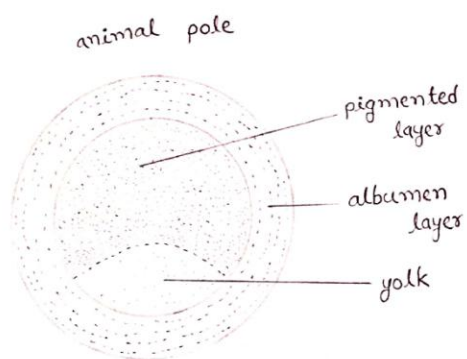 animal pole
pigmented
layer
albumen
layer
yolk